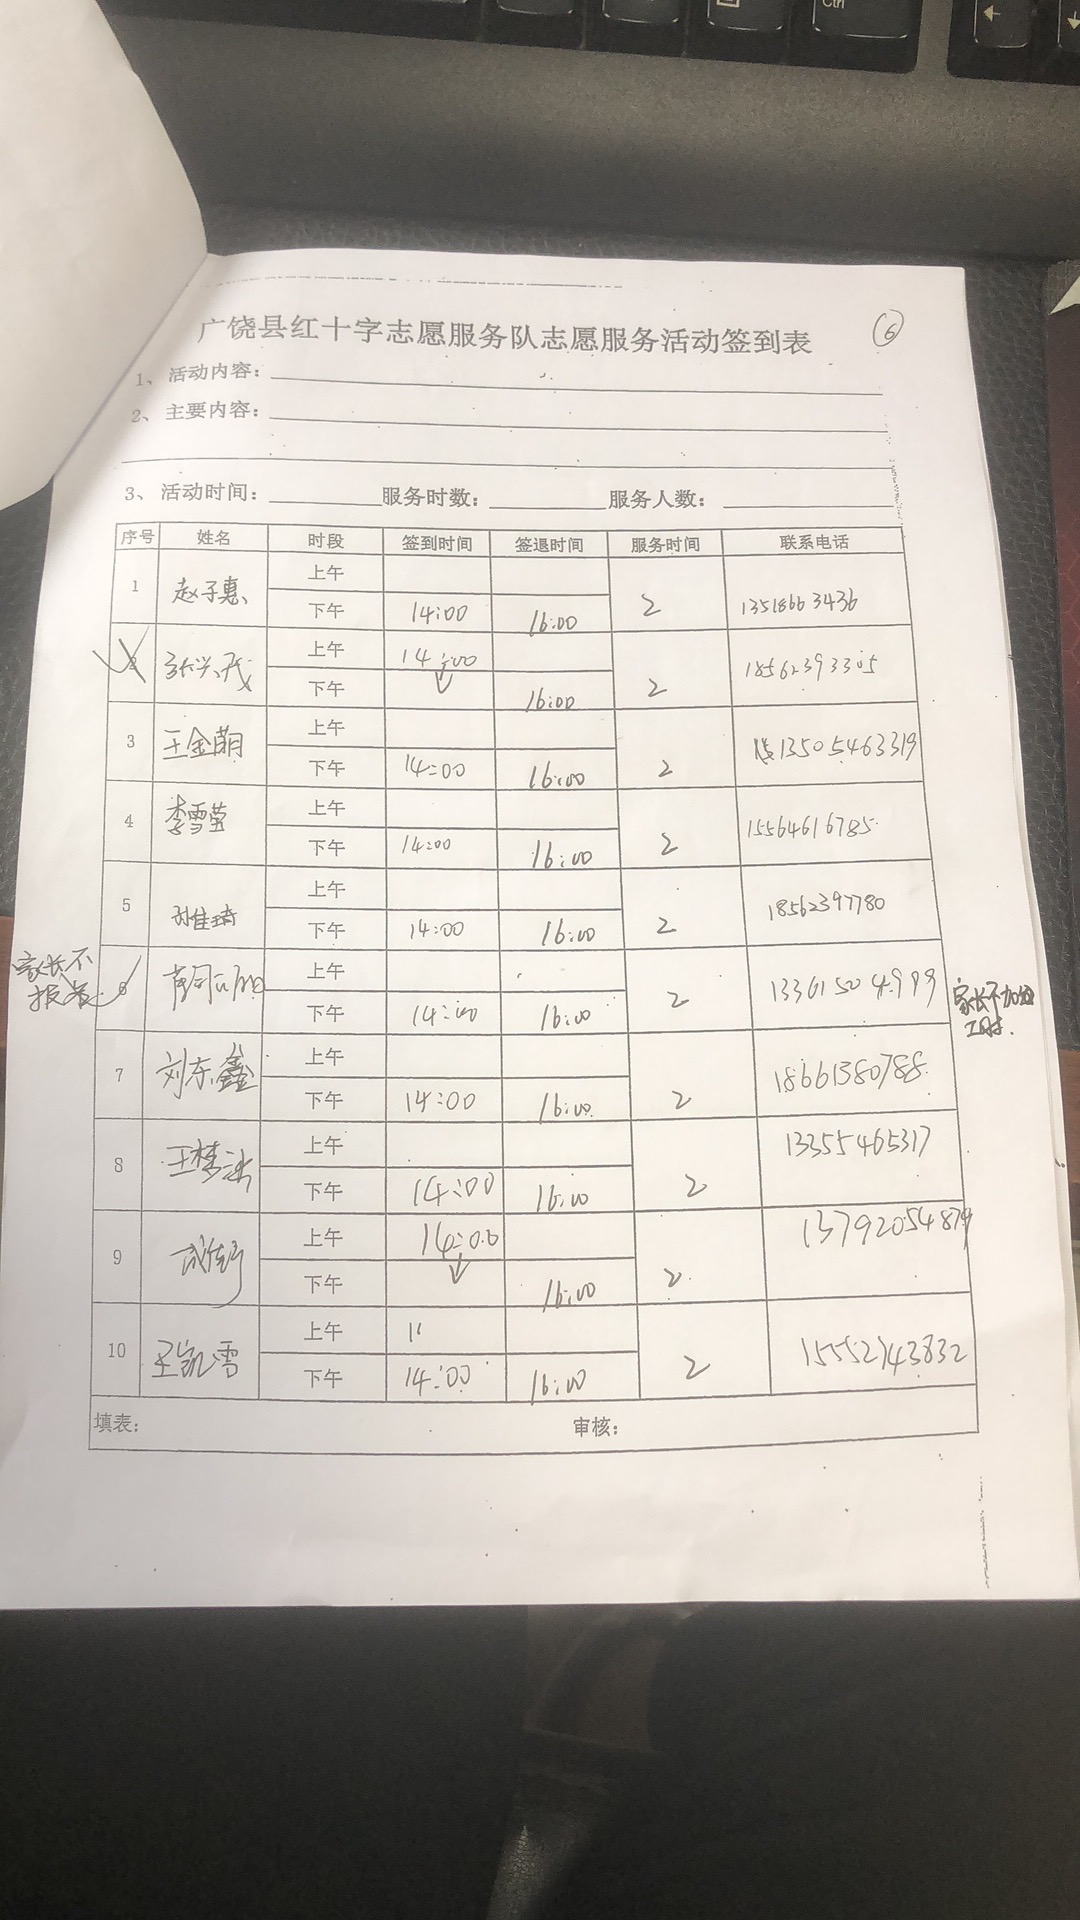 Ctrl
广饶县红十字志愿服务队志愿服务活动签到表
6
1、活动内容：
2、主要内容：
3、活动时间： 服务时数： 服务人数：
序号 姓名 时段 签到时间 签退时间 服务时间 联系电话
1 赵子惠 上午
下午 14:00 16:00 2 13518663436
2 张兴茂 上午 14:00
下午 16:00 2 18562393305
3 王金萌 上午
下午 14:00 16:00 2 13505463319
4 李雪莹 上午
下午 14:00 16:00 2 15564616785
5 孙佳琦 上午
下午 14:00 16:00 2 18562397780
家长不
6 上午
下午 14:00 16:00 2 13361504999
家长不加
7 刘东鑫 上午
下午 14:00 16:00 2 18661380788
8 王梦 上午
下午 14:00 16:00 2 13355465317
9 上午 14:00
下午 16:00 2 13792054879
10 王凯雪 上午
下午 14:00 16:00 2 15552743832
填表： 审核：